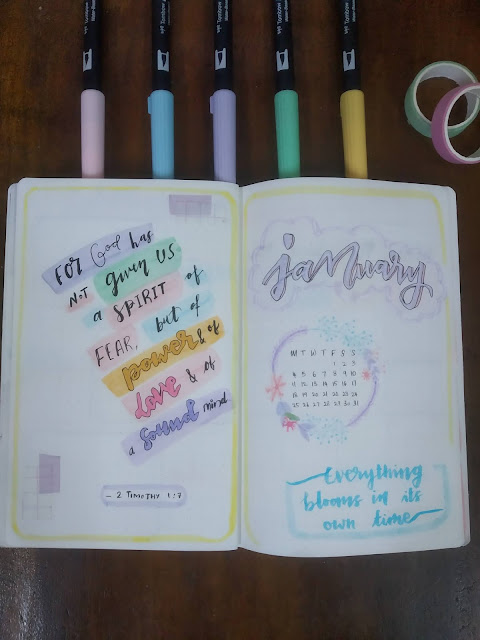 FOR God has
NOT given US
a SPIRIT of
FEAR, but of
power & of
love & of
a sound mind
- 2 TIMOTHY 1:7
january
M T W T F S S
1 2 3
4 5 6 7 8 9 10
11 12 13 14 15 16 17
18 19 20 21 22 23 24
25 26 27 28 29 30 31
everything
blooms in its
own time
Tombow
Tombow
Tombow
Tombow
Tombow